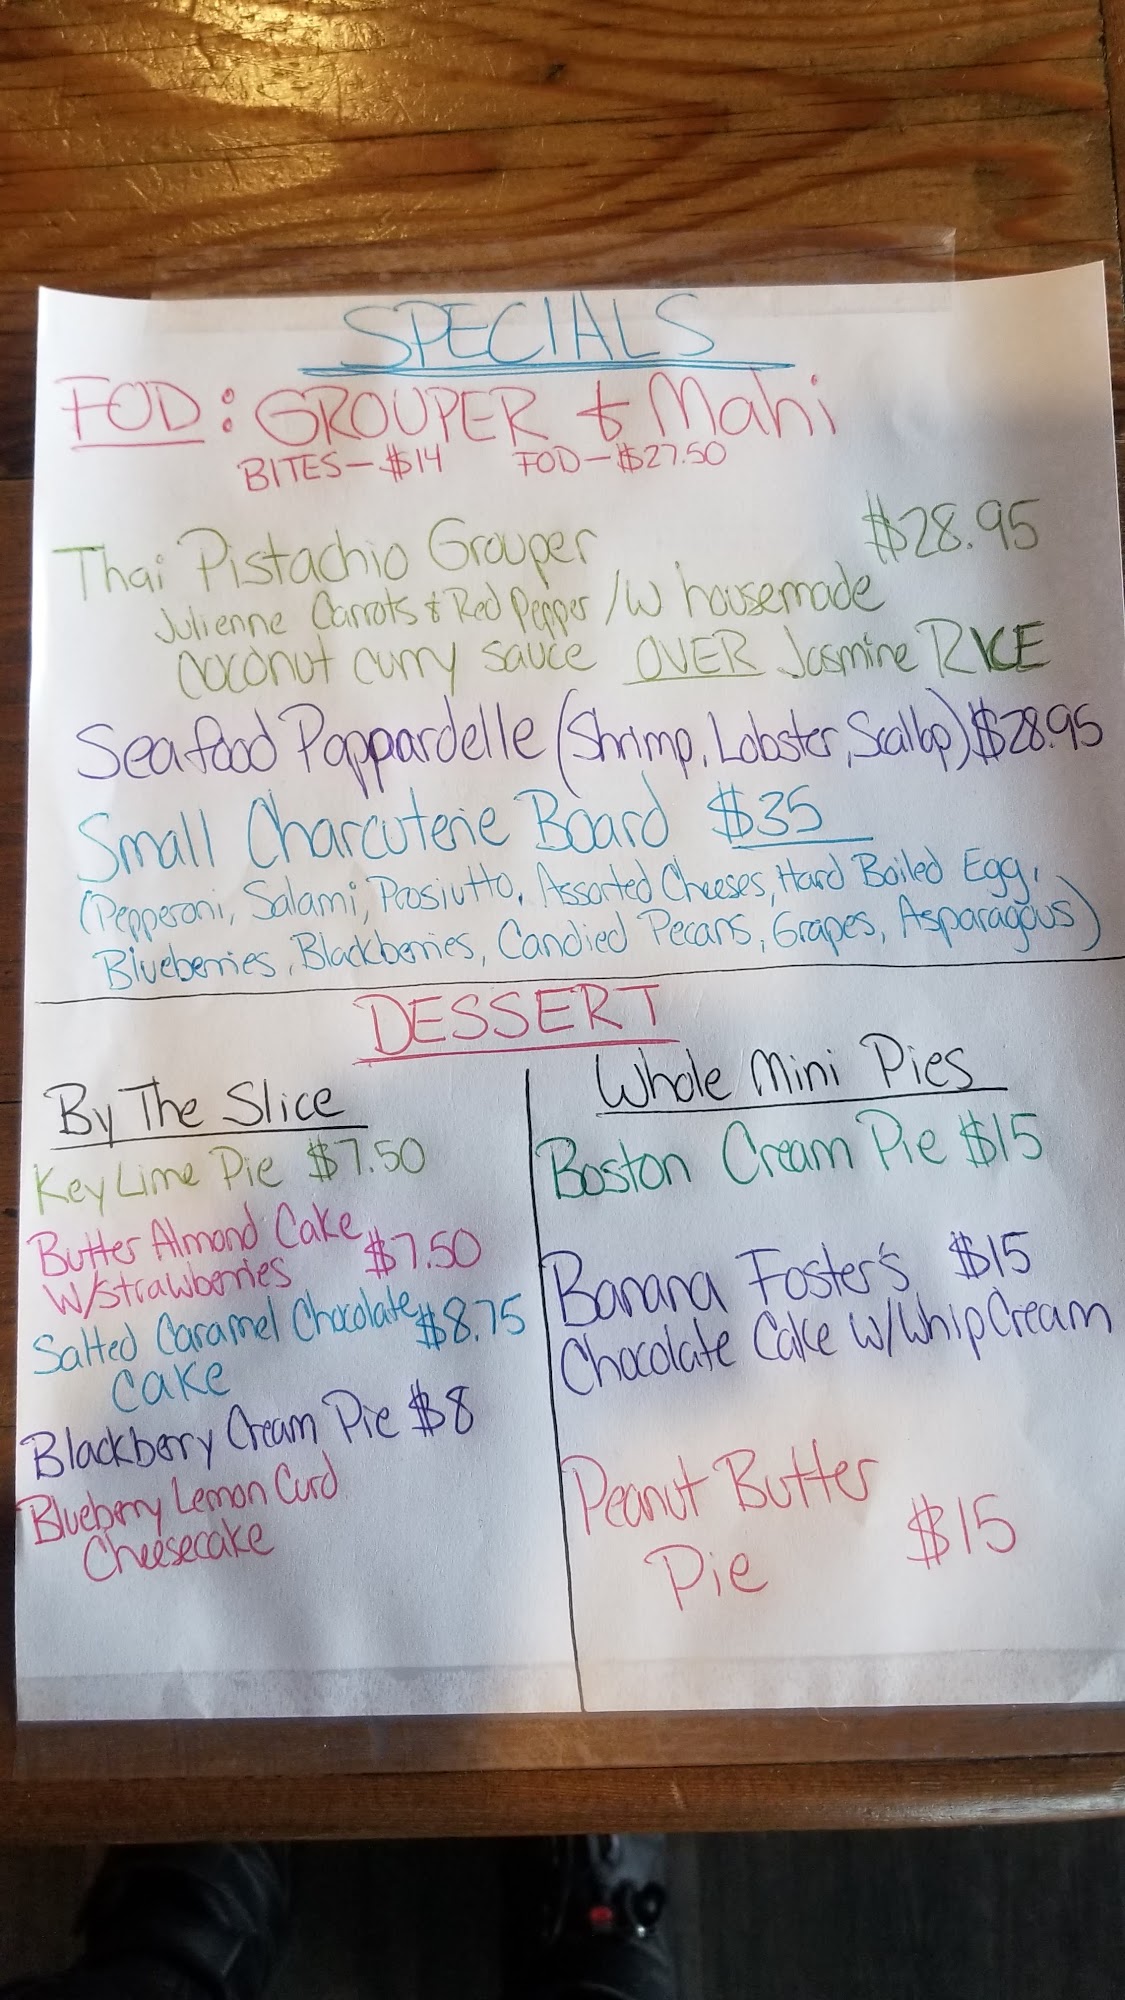 SPECIALS
FOD: GROUPER & Mahi
BITES-$14 FOD-$27.50
Thai Pistachio Grouper $28.95
Julienne Carrots & Red Pepper /W housemade
coconut curry sauce OVER Jasmine RICE
Seafood Pappardelle (Shrimp, Lobster, Scallop) $28.95
Small Charcuterie Board $35
(Pepperoni, Salami, Prosiutto, Assorted Cheeses, Hard Boiled Egg,
Blueberries, Blackberries, Candied Pecans, Grapes, Asparagous)
DESSERT
By The Slice
Key Lime Pie $7.50
Butter Almond Cake
W/strawberries $7.50
Salted Caramel Chocolate $8.75
Cake
Blackberry Cream Pie $8
Blueberry Lemon Curd
Cheesecake
Whole Mini Pies
Boston Cream Pie $15
Banana Foster's $15
Chocolate Cake W/Whip Cream
Peanut Butter
Pie $15